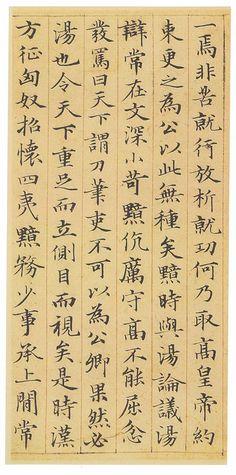 一焉非苦就行放析就功何乃取髙皇帝約
東更之為公以此無種矣黯時與湯論議湯
辯常在文深小苛黯伉厲守髙不能屈忿
發罵曰天下謂刀筆吏不可以為公卿果然必
湯也令天下重足而立側目而視矣是時漢
方征匈奴招懷四夷黯務少事承上閒常